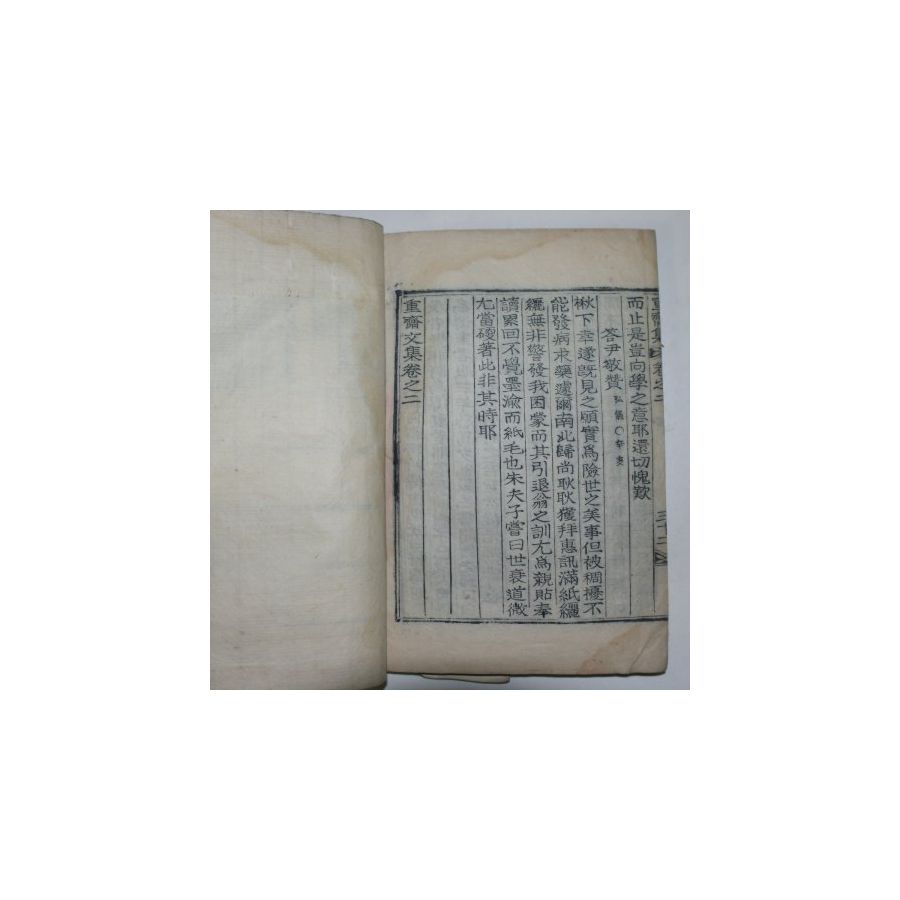 重齋集 卷之二
三十二
而止是豈向學之意耶還切愧歎
答尹敬贊 弘 ○辛亥
楸下幸遂旣見之願實爲險世之美事但被稠擾不
能發病求藥遽爾南北歸尚耿耿獲拜惠訊滿紙纚
纚無非警發我困蒙而其引退翁之訓尤爲親貼奉
讀累回不覺墨渝而紙毛也朱夫子嘗曰世衰道微
尤當硬著此非其時耶
重齋文集卷之二